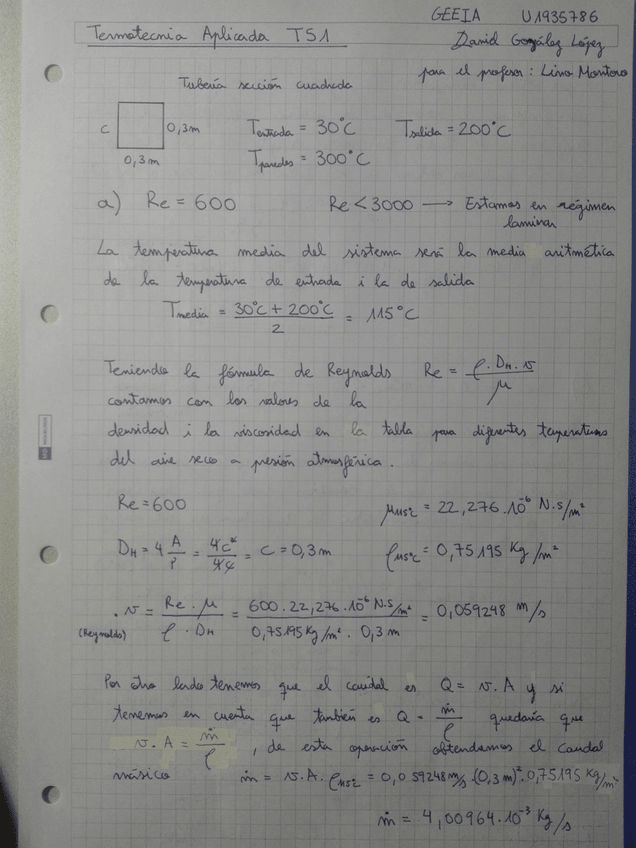 GEEIA U1935786
Termotecnia Aplicada TS1
David González López
para el profesor: Lino Montoro
Tubería sección cuadrada
c 0,3m
0,3m
Tentrada = 30°C Tsalida = 200°C
Tparedes = 300°C
a) Re = 600 Re < 3000 → Estamos en régimen
laminar
La temperatura media del sistema será la media aritmética
de la temperatura de entrada i la de salida
Tmedia = (30°C + 200°C)/2 = 115°C
Teniendo la fórmula de Reynolds Re = (ρ · DH · v)/μ
contamos con los valores de la
densidad i la viscosidad en la tabla para diferentes temperaturas
del aire seco a presión atmosférica.
Re = 600 μ115°C = 22,276 · 10⁻⁶ N·s/m²
DH = 4 A/P = 4c²/4c = c = 0,3m ρ115°C = 0,75195 Kg/m²
· v = (Re · μ)/(ρ · DH) = (600 · 22,276 · 10⁻⁶ N·s/m²)/(0,75195 Kg/m² · 0,3m) = 0,059248 m/s
(Reynolds)
Por otro lado tenemos que el caudal es Q = v. A y si
tenemos en cuenta que también es Q = ṁ/ρ quedaría que
v. A = ṁ/ρ , de esta operación obtendremos el caudal
másico ṁ = v. A. ρ115°C = 0,059248m/s · (0,3m)² · 0,75195 Kg/m²
ṁ = 4,00964 · 10⁻³ Kg/s